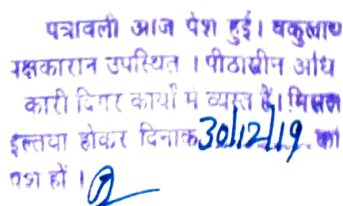 पत्रावली आज पेश हुई। वकुलाय
पक्षकारान उपस्थित । पीठासीन अधि
कारी दिगर कार्यो में व्यस्त हैं। मिसल
इल्तवा होकर दिनाक 30/12/19 को
पेश हों ।